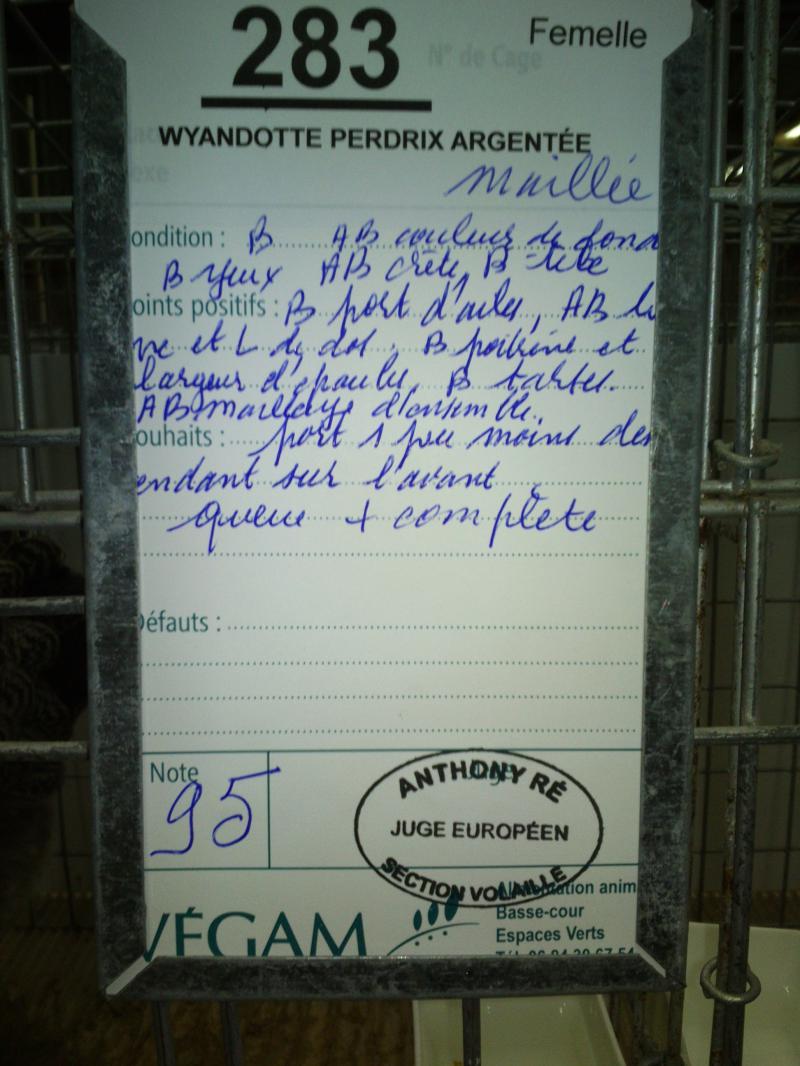 283
Femelle
N° de Cage
WYANDOTTE PERDRIX ARGENTÉE
exe
maillée
ondition : B AB couleur de fond
B yeux AB crête, B tête
oints positifs : B port d'ailes, AB
et L de dos, B poitrine et
largeur d'épaules, B tarses.
AB maillage d'ensemble.
ouhaits : port 1 peu moins de
endant sur l'avant
queue + complète
Défauts :
Note
95
ANTHONY RÉ
JUGE EUROPÉEN
SECTION VOLAILLE
VÉGAM
Alimentation anim
Basse-cour
Espaces Verts